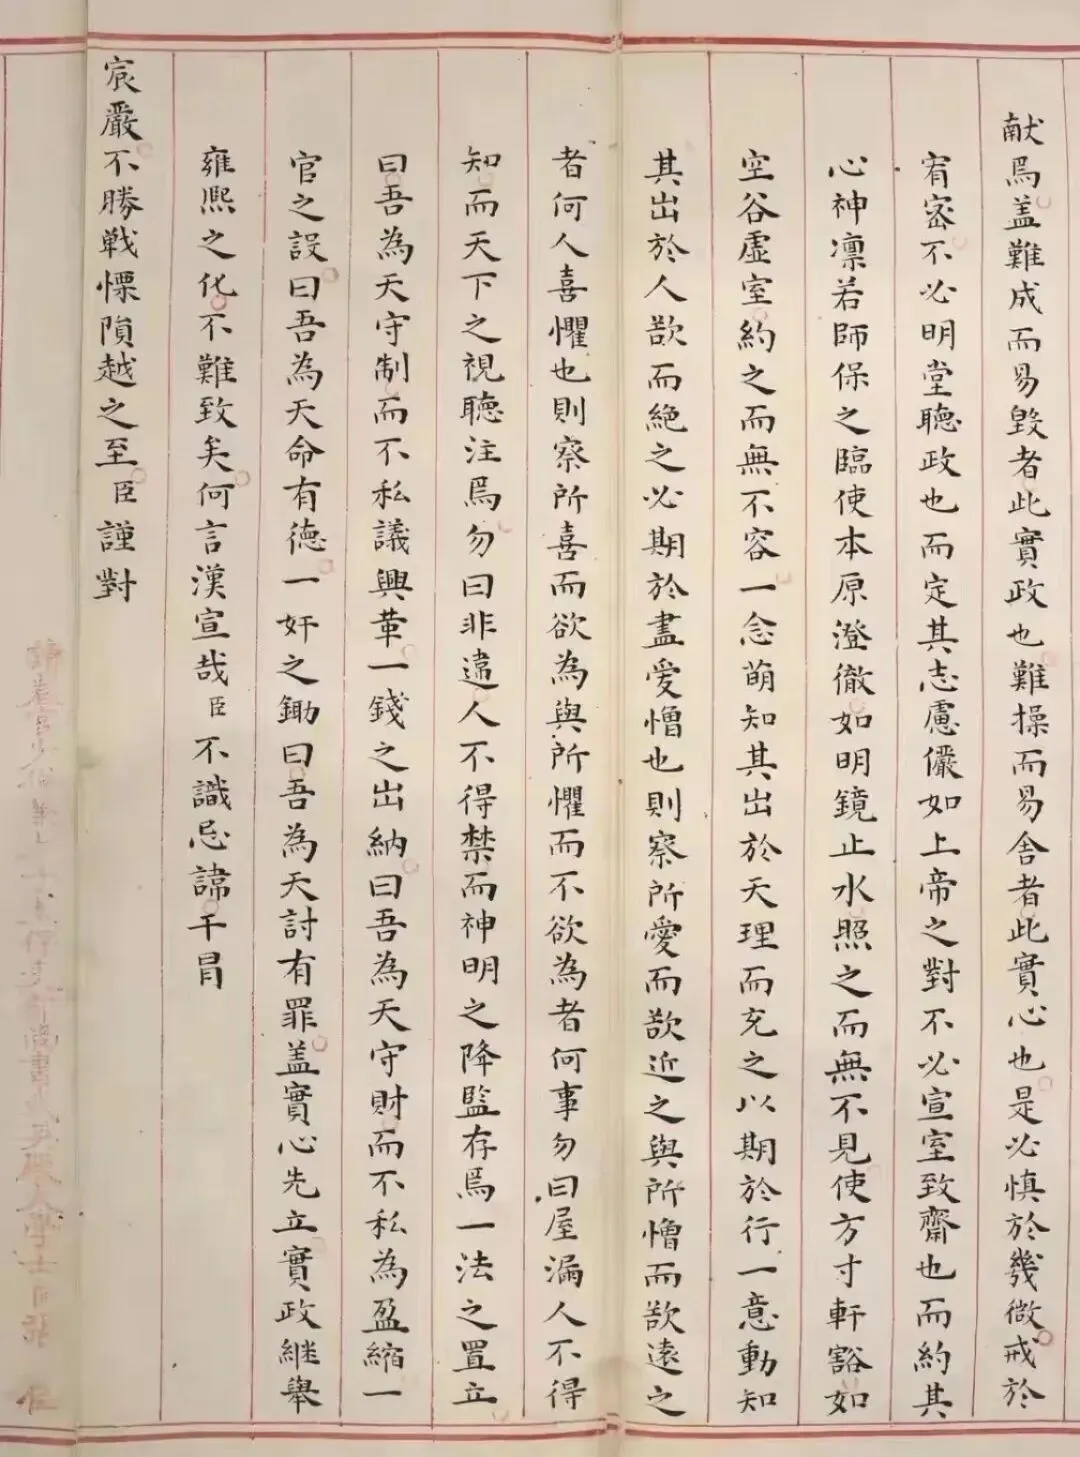 献焉盖難成而易毀者此實政也難操而易舍者此實心也是必慎於幾微戒於
宥密不必明堂聽政也而定其志慮儼如上帝之對不必宣室致齋也而約其
心神凛若師保之臨使本原澄徹如明鏡止水照之而無不見使方寸軒豁如
空谷虛室約之而無不容一念萌知其出於天理而充之以期於行一意動知
其出於人欲而絕之必期於盡愛憎也則察所愛而欲近之與所憎而欲遠之
者何人喜懼也則察所喜而欲為與所懼而不欲為者何事勿曰屋漏人不得
知而天下之視聽注焉勿曰非違人不得禁而神明之降監存焉一法之置立
曰吾為天守制而不私議興革一錢之出納曰吾為天守財而不私為盈縮一
官之設曰吾為天命有德一奸之鋤曰吾為天討有罪盖實心先立實政継舉
雍熙之化不難致矣何言漢宣哉臣不識忌諱干冐
宸嚴不勝戰慄隕越之至臣謹對